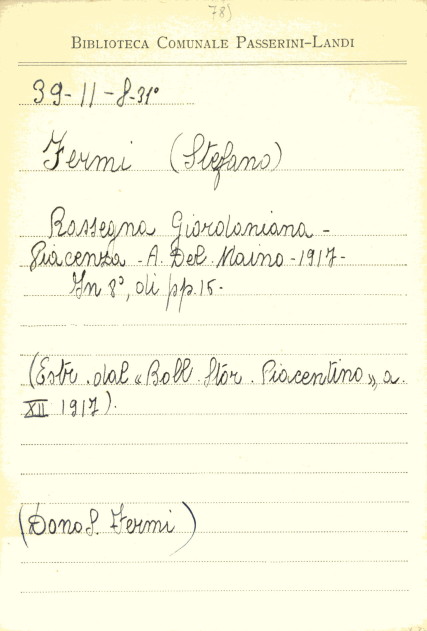 78)
BIBLIOTECA COMUNALE PASSERINI-LANDI
39-11-8-31°
Fermi (Stefano)
Rassegna Giordaniana -
Piacenza - A. Del Maino - 1917 -
In 8°, di pp. 15 -
(Estr. dal «Boll. Stor. Piacentino», a.
XII 1917).
(Dono S. Fermi)